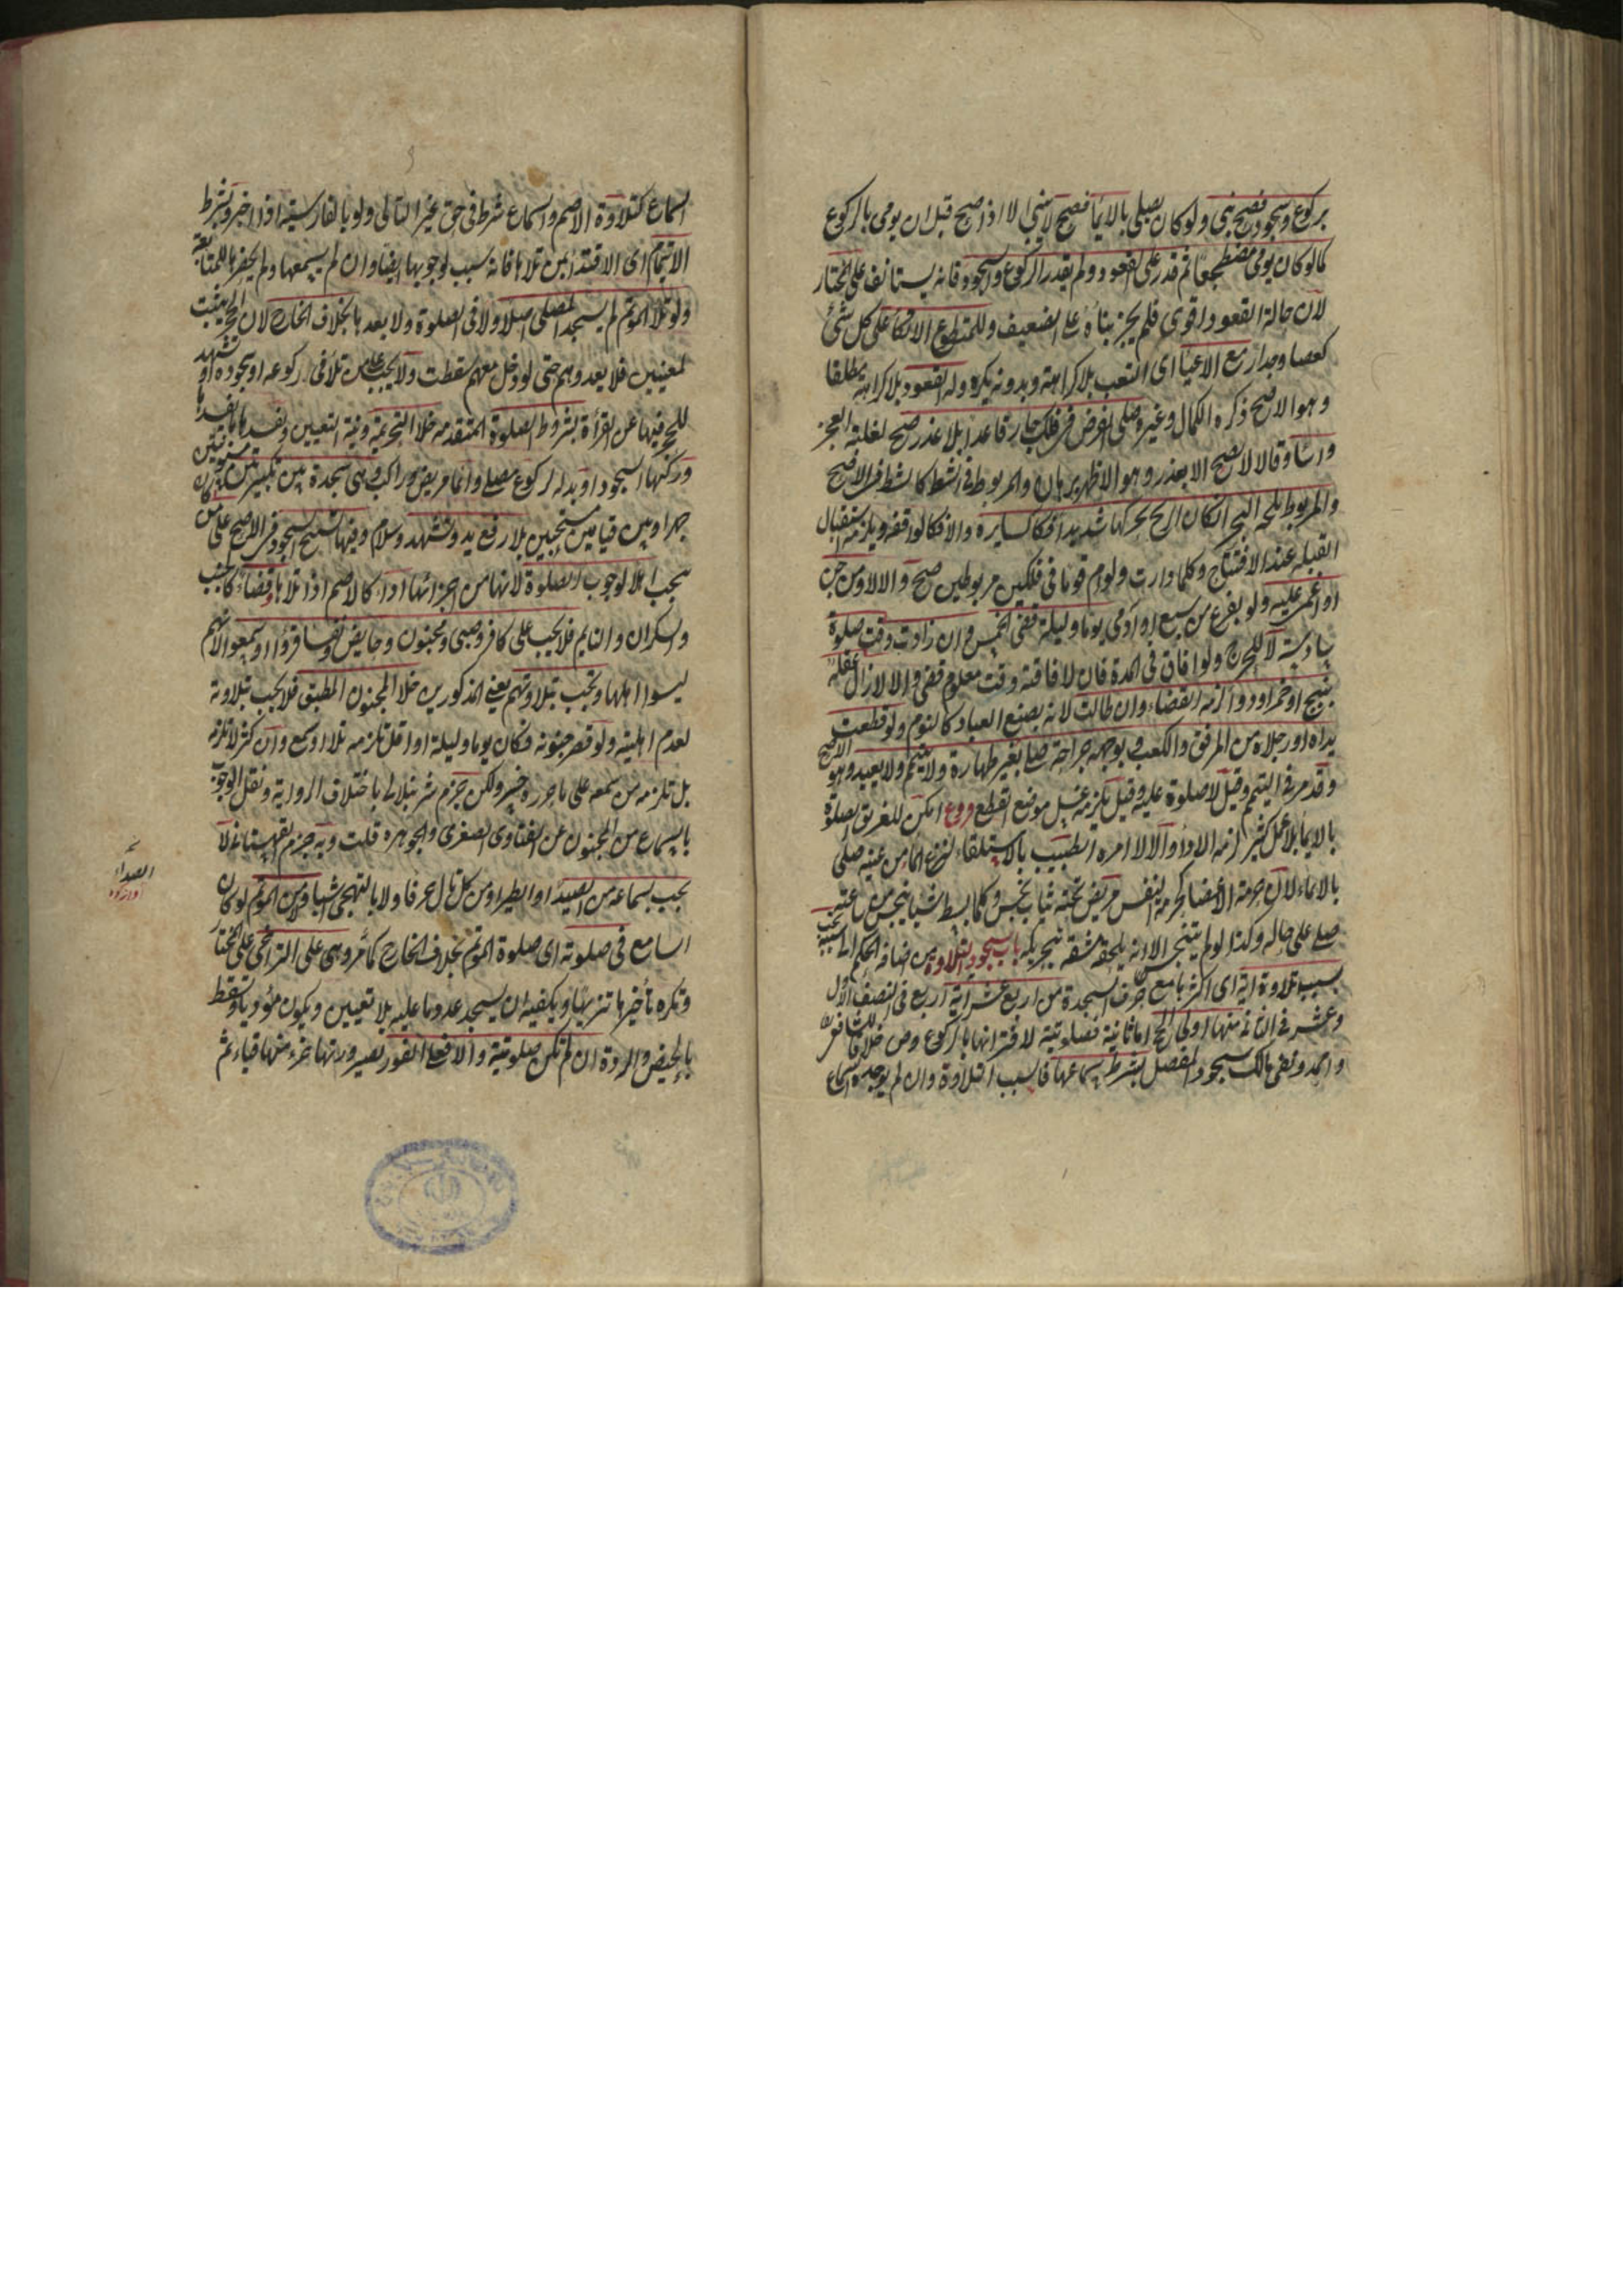 بركوع وسجود فصح بنى ولو كان يصلى بالايماً فصح لا يبنى الا اذا صح قبل ان يومى بالركوع
كما لو كان يومى مضطجعا ثم قدر على القعود ولم يقدر الركوع والسجود فانه يستانف على المختار
لان حالة القعود اقوى فلم يجز بناؤه على الضعيف وللمتطوع الاتكاً على كل شئ
كعصا وجدار مع الاعياً اى التعب بلا كراهة وبدونه يكره وله القعود بلا كراهة مطلقا
وهو الاصح ذكره الكمال وغيره صلى الفرض فى فلك جار قاعدا بلا عذر صح لغلبة العجز
واساً وقالا لا يصح الا بعذر وهو الاظهر برهان والمربوط فى الشط كالشط فى الاصح
والمربوط بلجة البحر ان كان الريح يحركها شديدا فكالسايره والا فكالواقفه ويلزمه استقبال
القبله عند الافتتاح وكلما دارت ولو ام قوما فى فلكين مربوطين صح والا لا ومن جن
او اغمى عليه ولو بفزع من سبع او ادمى يوما وليلة قضى الخمس وان زادت وقت صلوة
سادسة لا للحرج ولو افاق فى المدة فان لافاقته وقت معلوم قضى والا لا زال عقله
ببنج او خمر او دوا لزمه القضاء وان طالت لانه بصنع العباد كالنوم ولو قطعت
يداه او رجلاه من المرفق والكعب وبوجهه جراحة صلى بغير طهارة ولا يتيمم ولا يعيد وهو الاصح
وقد مر فى التيمم وقيل لا صلوة عليه وقيل يلزمه غسل موضع القطع فروع امكن للغريق الصلوة
بالايماً بلا عمل كثير لزمه الادا والا لا امره الطبيب بالاستلقاء لنزع الما من عينه صلى
بالايماء لان حرمة الاعضا كحرمة النفس مريض تحته ثياب نجس وكلما بسط شيا ينجس من ساعته
صلى على حاله وكذا لو لم يتنجس الا انه يلحقه مشقه بتحريكه باب سجود التلاوة من اضافة الحكم الى سببه تجب
بسبب تلاوة اية اى اكثرها مع حرف السجدة من اربع عشر اية اربع فى النصف الاول
وعشر فى الثانى منها اولى الحج اما ثانيته فصلوتية لاقترانها بالركوع وص خلافا للشافعى
واحمد ونفى مالك سجود المفصل بشرط سماعها فالسبب التلاوة وان لم يوجد السماع
السماع كتلاوة الاصم والسماع شرط فى حق غير التالى ولو بالفارسية اذا اخبر وبشرط
الايتمام اى الاقتدا بمن تلاها فانه سبب لوجوبها ايضا وان لم يسمعها ولم يحضرها للمتابعة
ولو تلا الموتم لم يسجد المصلى اصلا ولا فى الصلوة ولا بعدها بخلاف الخارج لان الحجر ثبت
لمعينين فلا يعدوهم حتى لو دخل معهم سقطت ولا يجب على من تلا فى ركوعه او سجوده او تشهد
للحجر فيها عن القرأة بشروط الصلوة المتقدمه خلا التحريمة ونية التعيين ويفسدها ما يفسدها
وركنها السجود او بدله كركوع مصلى وايما مريض وراكب وهى سجدة بين تكبيرتين مسنونتين
جهرا وبين قيامين مستحبين بلا رفع يد وتشهد وسلام وفيها تسبيح السجود فى الاصح على من كان
يجب اهلا لوجوب الصلوة لانها من اجزائها اداء كالاصم اذا تلا او قضاء كالجنب
والسكران والنايم فلا يجب على كافر وصبى ومجنون وحايض ونفسا قرؤا او سمعوا لانهم
ليسوا اهلها وتجب بتلاوتهم يعنى المذكورين خلا المجنون المطبق فلا يجب بتلاوته
لعدم اهليته ولو قصر جنونه فكان يوما وليلة او اقل تلزمه تلا او سمع وان كثر لا تلزمه
بل تلزم من سمعه على ما حرره خسرو لكن جزم الشرنبلالى باختلاف الرواية ونقل الوجوب
بالسماع من المجنون عن الفتاوى الصغرى والجوهره قلت وبه جزم القهستانى لا
تجب بسماعه من الصيداً او الطير او من كل تال حرفا ولا بالتهجى اشباه ولا من الموتم لو كان
السامع فى صلوته اى صلوة الموتم بخلاف الخارج كما مر وهى على التراخى على المختار
وتكره تأخيرها تنزيها ويكفيه ان يسجد عدد ما عليه بلا تعيين ويكون مؤديا وتسقط
بالحيض والردة ان لم تكن صلوتية والا فعلى الفور لصيرورتها جزء منها فياثم
الصداء